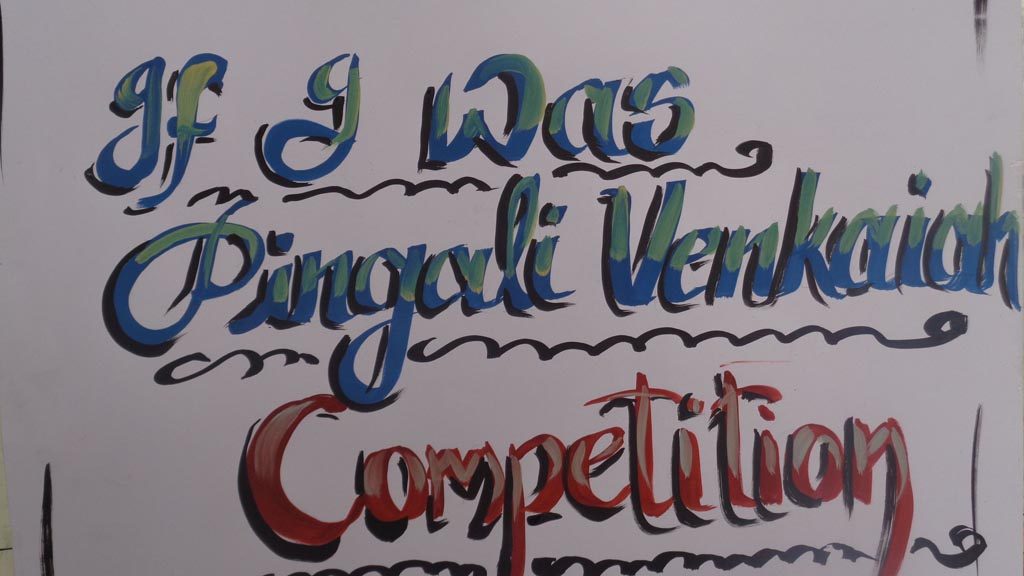 If I was
Pingali Venkaiah
Competition